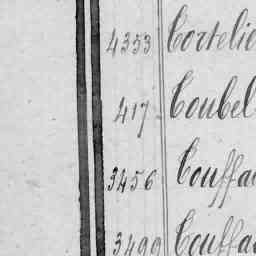 4353 Cortelio
417 Coubel
3456 Couffa
3499 Couffa